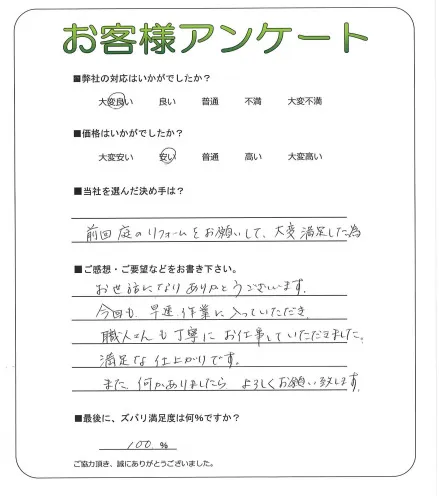 お客様アンケート
■弊社の対応はいかがでしたか？
大変良い 良い 普通 不満 大変不満
■価格はいかがでしたか？
大変安い 安い 普通 高い 大変高い
■当社を選んだ決め手は？
前回庭のリフォームをお願いして、大変満足した為
■ご感想・ご要望などをお書き下さい。
お世話になりありがとうございます。
今回も、早速作業に入っていただき、
職人さんも丁寧にお仕事していただきました。
満足な仕上がりです。
また、何かありましたら よろしくお願い致します。
■最後に、ズバリ満足度は何％ですか？
100 ％
ご協力頂き、誠にありがとうございました。